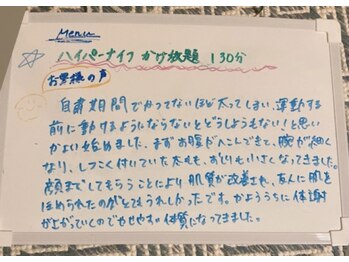 Menu
ハイパーナイフ かけ放題 130分
お客様の声
自粛期間でかってないほど太ってしまい、運動する
前に動けるようにならないとどうしようもない！と思い
かよい始めました。まずお腹がへこんできて、腕が細く
なり、しつこく付いていた太ももも、おしりも小さくなってきました。
顔までしてもらうことにより肌質が改善され、友人に肌を
ほめられたのがとてもうれしかったです。かようちうに代謝
が上がっていくのでやせやすい体質になってきました。